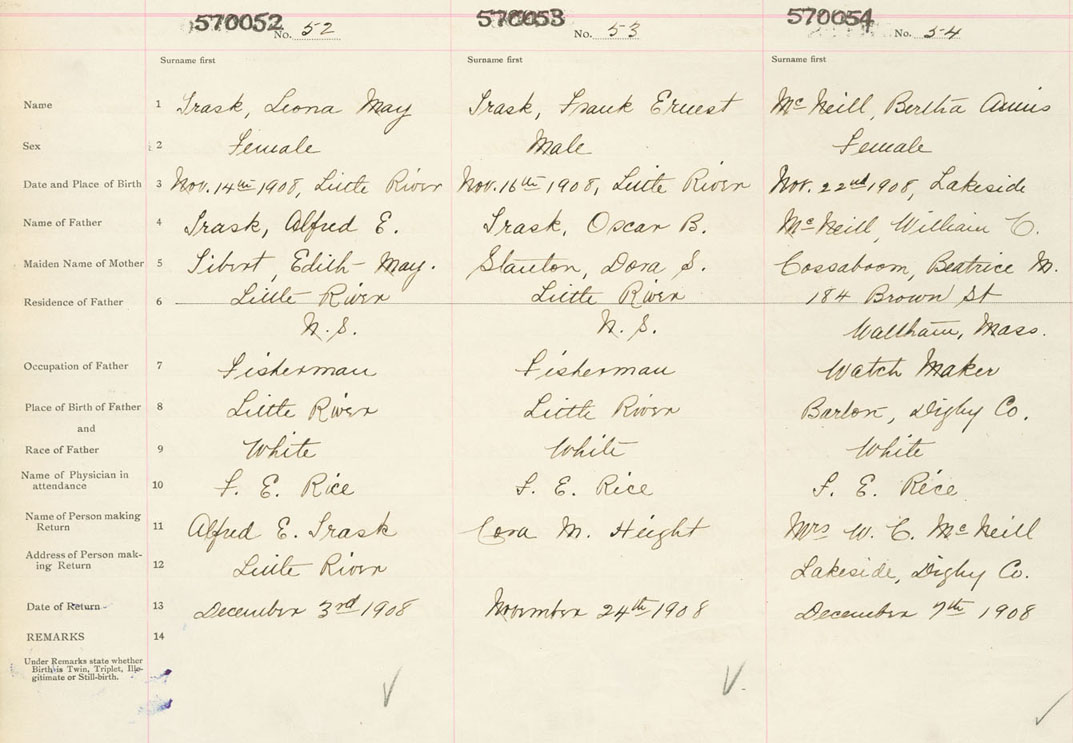 570052 No. 52 570053 No. 53 570054 No. 54
Surname first Surname first Surname first
Name 1 Trask, Leona May Trask, Frank Ernest McNeill, Bertha
Sex 2 Female Male Female
Date and Place of Birth 3 Nov. 14th 1908, Little River Nov. 16th 1908, Little River Nov. 22nd 1908, Lakeside
Name of Father 4 Trask, Alfred E. Trask, Oscar B. McNeill, William C.
Maiden Name of Mother 5 Edith May. Stanton, Dora S. Cossaboom, Beatrice M.
Residence of Father 6 Little River Little River 184 Brown St
N. S. N. S. Waltham, Mass.
Occupation of Father 7 Fisherman Fisherman Watch Maker
Place of Birth of Father 8 Little River Little River Barton, Digby Co.
and
Race of Father 9 White White White
Name of Physician in
attendance 10 F. E. Rice F. E. Rice F. E. Rice
Name of Person making
Return 11 Alfred E. Trask Cora M. Height Mrs W. C. McNeill
Address of Person mak-
ing Return 12 Little River Lakeside, Digby Co.
Date of Return 13 December 3rd 1908 November 24th 1908 December 7th 1908
REMARKS 14
Under Remarks state whether
Birth is Twin, Triplet, Ille-
gitimate or Still-birth.